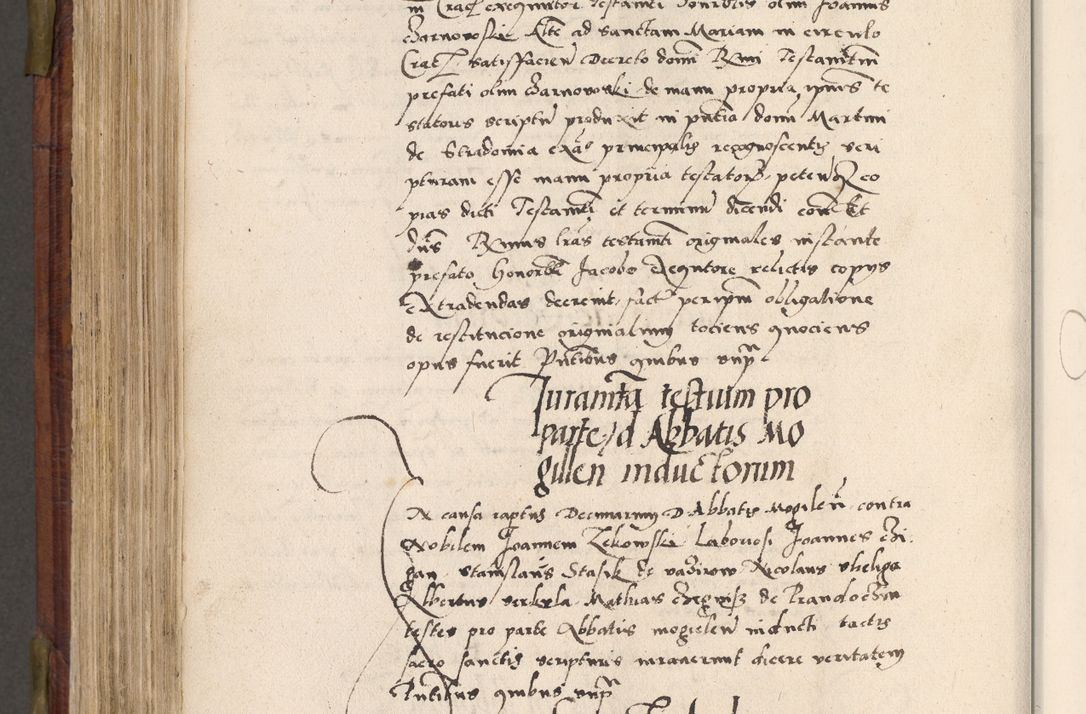 in Crac exequutor Testamti honorabilis olim Joannis
Czarnowski Alte ad sanctam Mariam in circulo
Crac satisfacien Decreto domi Rmi Testamtum
prefati olim Czarnowski de manu propria ipius te
statoris scriptu produxit in pntia domi Martini
de Stradomia exas principalis recognoscentis scri
pturam esse manu propria testatoris peten co
pias dicti Testamti et terminu dicendi contra Et
dns Rmus lras testamti originales instante
prefato honorbli Jacobo Exequtore relictis copys
extradendas decrevit facta per ipm obligatione
de restitucione originalium tociens quociens
opus fuerit Pntibus quibus supra
Juramta testium pro
parte d Abbatis Mo
gilen inductorum
In causa raptus Decimarum D Abbatis Mogilen contra
Nobilem Joannem Zekowski Laboriosi Joannes Czi
gan Stanislaus Stasik de Nicolaus
Albertus Mathias de Prandoczin
testes pro parte Abbatis mogilen inducti tactis
sacro sanctis scripturis iuraverunt dicere veritatem
Pntibus quibus supra